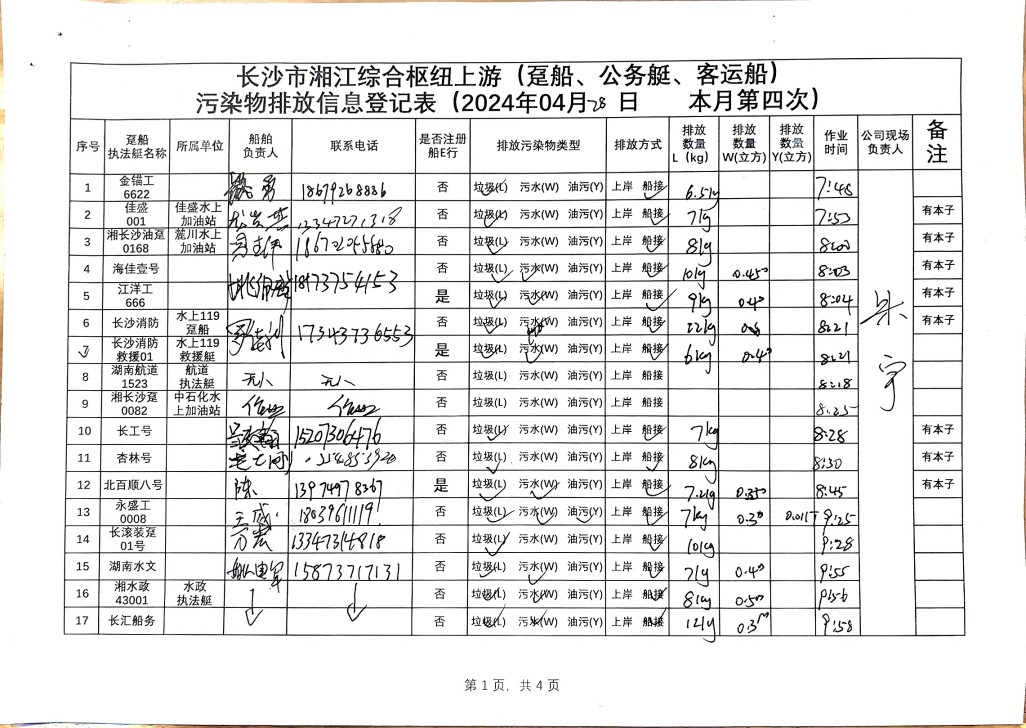 长沙市湘江综合枢纽上游（趸船、公务艇、客运船）
污染物排放信息登记表（2024年04月28日 本月第四次）
序号 趸船执法艇名称 所属单位 船舶负责人 联系电话 是否注册船E行 排放污染物类型 排放方式 排放数量L（kg） 排放数量W(立方) 排放数量Y(立方) 作业时间 公司现场负责人 备注
1 金锚工6622 勇 18679268886 否 垃圾(L) 污水(W) 油污(Y) 上岸 船接 6.5kg 7:48
2 佳盛001 佳盛水上加油站 13347271318 否 垃圾(L) 污水(W) 油污(Y) 上岸 船接 7kg 7:53 有本子
3 湘长沙油趸0168 麓川水上加油站 否 垃圾(L) 污水(W) 油污(Y) 上岸 船接 8kg 8:00 有本子
4 海佳壹号 否 垃圾(L) 污水(W) 油污(Y) 上岸 船接 10kg 0.45 8:03 有本子
5 江洋工666 18973754153 是 垃圾(L) 污水(W) 油污(Y) 上岸 船接 9kg 0.4 8:04 有本子
6 长沙消防 水上119趸船 17343736553 否 垃圾(L) 污水(W) 油污(Y) 上岸 船接 22kg 8:21 有本子
7 长沙消防救援01 水上119救援艇 是 垃圾(L) 污水(W) 油污(Y) 上岸 船接 6kg 0.4 8:21
8 湖南航道1523 航道执法艇 无人 无人 否 垃圾(L) 污水(W) 油污(Y) 上岸 船接 8:18
9 湘长沙趸0082 中石化水上加油站 作业 作业 否 垃圾(L) 污水(W) 油污(Y) 上岸 船接 8:25
10 长工号 15207306476 否 垃圾(L) 污水(W) 油污(Y) 上岸 船接 7kg 8:28 有本子
11 杏林号 否 垃圾(L) 污水(W) 油污(Y) 上岸 船接 8kg 8:30 有本子
12 北百顺八号 陈 13974978367 是 垃圾(L) 污水(W) 油污(Y) 上岸 船接 7.2kg 0.35 8:45 有本子
13 永盛工0008 否 垃圾(L) 污水(W) 油污(Y) 上岸 船接 7kg 0.3 9:25
14 长滚装趸01号 13347314818 否 垃圾(L) 污水(W) 油污(Y) 上岸 船接 10kg 9:28
15 湖南水文 15873717131 否 垃圾(L) 污水(W) 油污(Y) 上岸 船接 7kg 0.4 9:55
16 湘水政43001 水政执法艇 否 垃圾(L) 污水(W) 油污(Y) 上岸 船接 8kg 0.5 9:56
17 长汇船务 否 垃圾(L) 污水(W) 油污(Y) 上岸 船接 12kg 0.3 9:58
宇
第 1 页，共 4 页